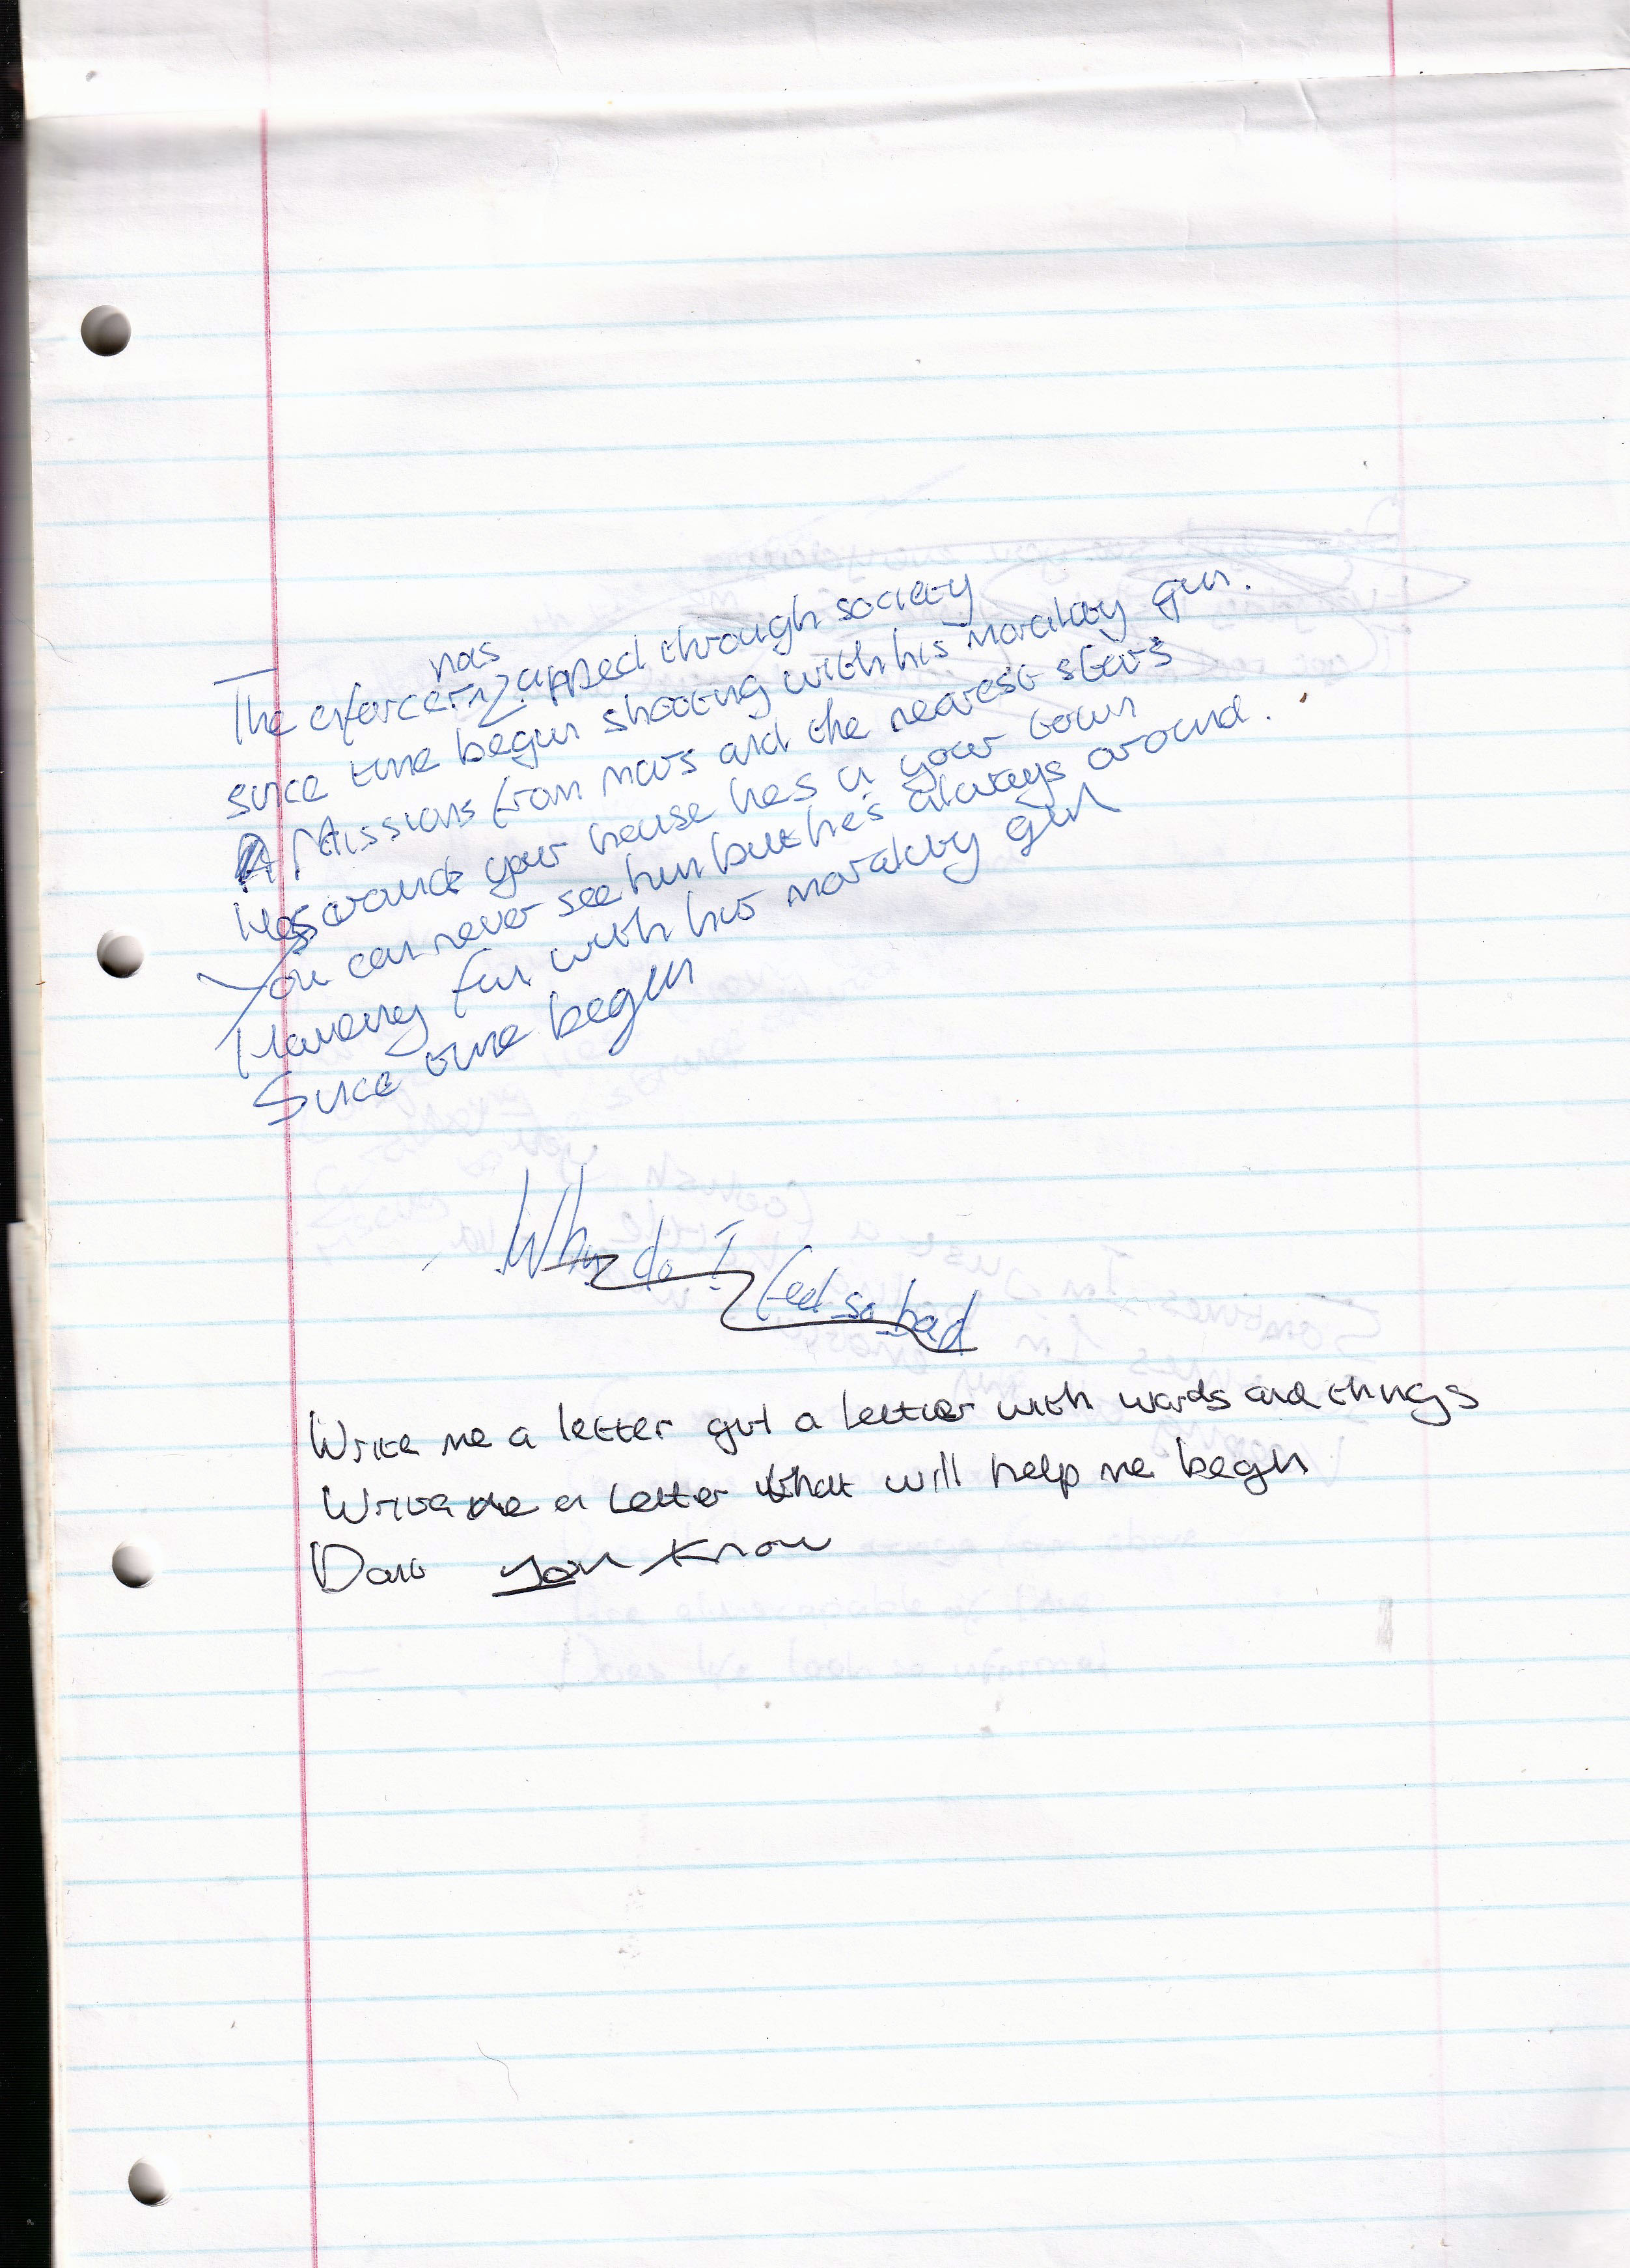 The enforcer has zapped through society
since time begun shooting with his morality gun.
Missions from mars and the nearest stars
Hes around your house hes in your town
You can never see him but he's always around.
Having fun with his morality gun
Since time begun
Why do I feel so bad
Write me a letter girl a letter with words and things
Write me a letter that will help me begin
you know